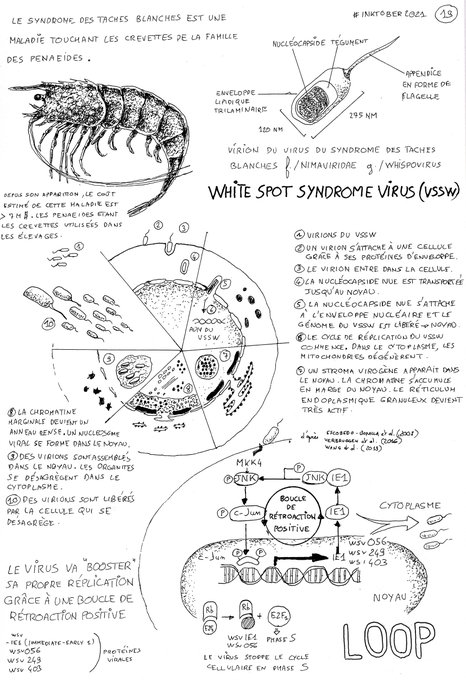 LE SYNDROME DES TACHES BLANCHES EST UNE
MALADIE TOUCHANT LES CREVETTES DE LA FAMILLE
DES PENAEIDES.
# INKTOBER 2021
19
NUCLÉOCAPSIDE
TÉGUMENT
APPENDICE
EN FORME DE
FLAGELLE
ENVELOPPE
LIPIDIQUE
TRILAMINAIRE
120 NM
295 NM
VIRION DU VIRUS DU SYNDROME DES TACHES
BLANCHES f./NIMAVIRIDAE g./WHISPOVIRUS
WHITE SPOT SYNDROME VIRUS (VSSW)
DEPUIS SON APPARITION, LE COÛT
ESTIMÉ DE CETTE MALADIE EST
> 7 M $. LES PENAEIDES ETANT
LES CREVETTES UTILISÉES DANS
LES ÉLEVAGES.
1
2
3
4
5
6
ADN DU
VSSW
7
8
9
10
1 VIRIONS DU VSSW
2 UN VIRION S'ATTACHE À UNE CELLULE
GRÂCE À SES PROTÉINES D'ENVELOPPE.
3 LE VIRION ENTRE DANS LA CELLULE.
4 LA NUCLÉOCAPSIDE NUE EST TRANSPORTÉE
JUSQU'AU NOYAU.
5 LA NUCLÉOCAPSIDE NUE S'ATTACHE
À L'ENVELOPPE NUCLÉAIRE ET LE
GÉNOME DU VSSW EST LIBÉRÉ → NOYAU.
6 LE CYCLE DE RÉPLICATION DU VSSW
COMMENCE. DANS LE CYTOPLASME, LES
MITOCHONDRIES DÉGÉNÈRENT.
7 UN STROMA VIROGÈNE APPARAIT DANS
LE NOYAU. LA CHROMATINE S'ACCUMULE
EN MARGE DU NOYAU. LE RÉTICULUM
ENDOPLASMIQUE GRANULEUX DEVIENT
TRÈS ACTIF.
8 LA CHROMATINE
MARGINALE DEVIENT UN
ANNEAU DENSE. UN NUCLÉOSOME
VIRAL SE FORME DANS LE NOYAU.
9 DES VIRIONS SONT ASSEMBLÉS
DANS LE NOYAU. LES ORGANITES
SE DÉSAGRÈGENT DANS LE
CYTOPLASME.
10 DES VIRIONS SONT LIBÉRÉS
PAR LA CELLULE QUI SE
DÉSAGRÈGE.
d'après
VERBRUGGEN et al. (2016)
MKK4
P
JNK
P
JNK
IE1
P
c-Jun
BOUCLE
DE
RÉTROACTION
POSITIVE
IE1
CYTOPLASME
P
P
c-Jun
IE1
wsv 056
wsv 249
wsv 403
NOYAU
LE VIRUS VA "BOOSTER"
SA PROPRE RÉPLICATION
GRÂCE À UNE BOUCLE DE
RÉTROACTION POSITIVE
wsv
- IE1 (IMMEDIATE-EARLY 1)
wsv 056
wsv 249
wsv 403
PROTÉINES
VIRALES
Rb
E2F1
Rb
+
E2F1
wsv IE1
wsv 056
PHASE S
LE VIRUS STOPPE LE CYCLE
CELLULAIRE EN PHASE S
LOOP